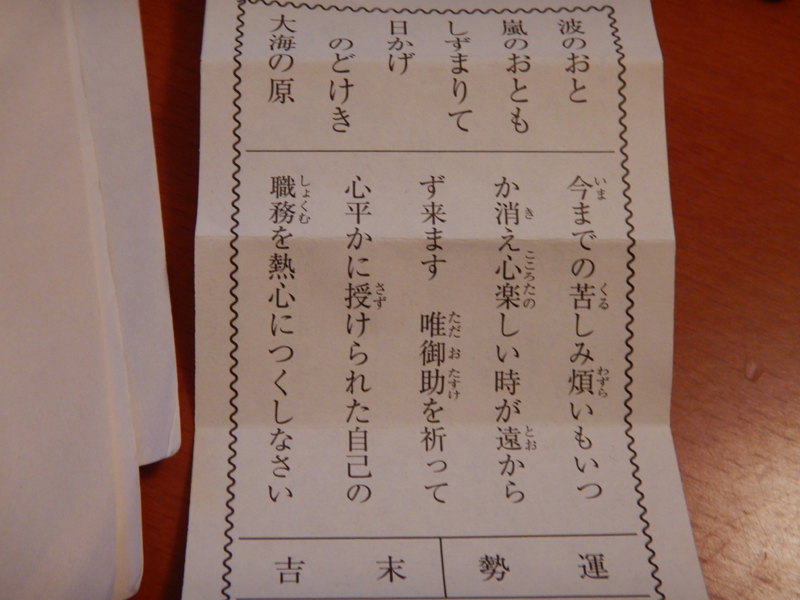 波のおと
嵐のおとも
しずまりて
日かげ
のどけき
大海の原
今までの苦しみ煩いもいつ
か消え心楽しい時が遠から
ず来ます　唯御助を祈って
心平かに授けられた自己の
職務を熱心につくしなさい
運勢
末吉